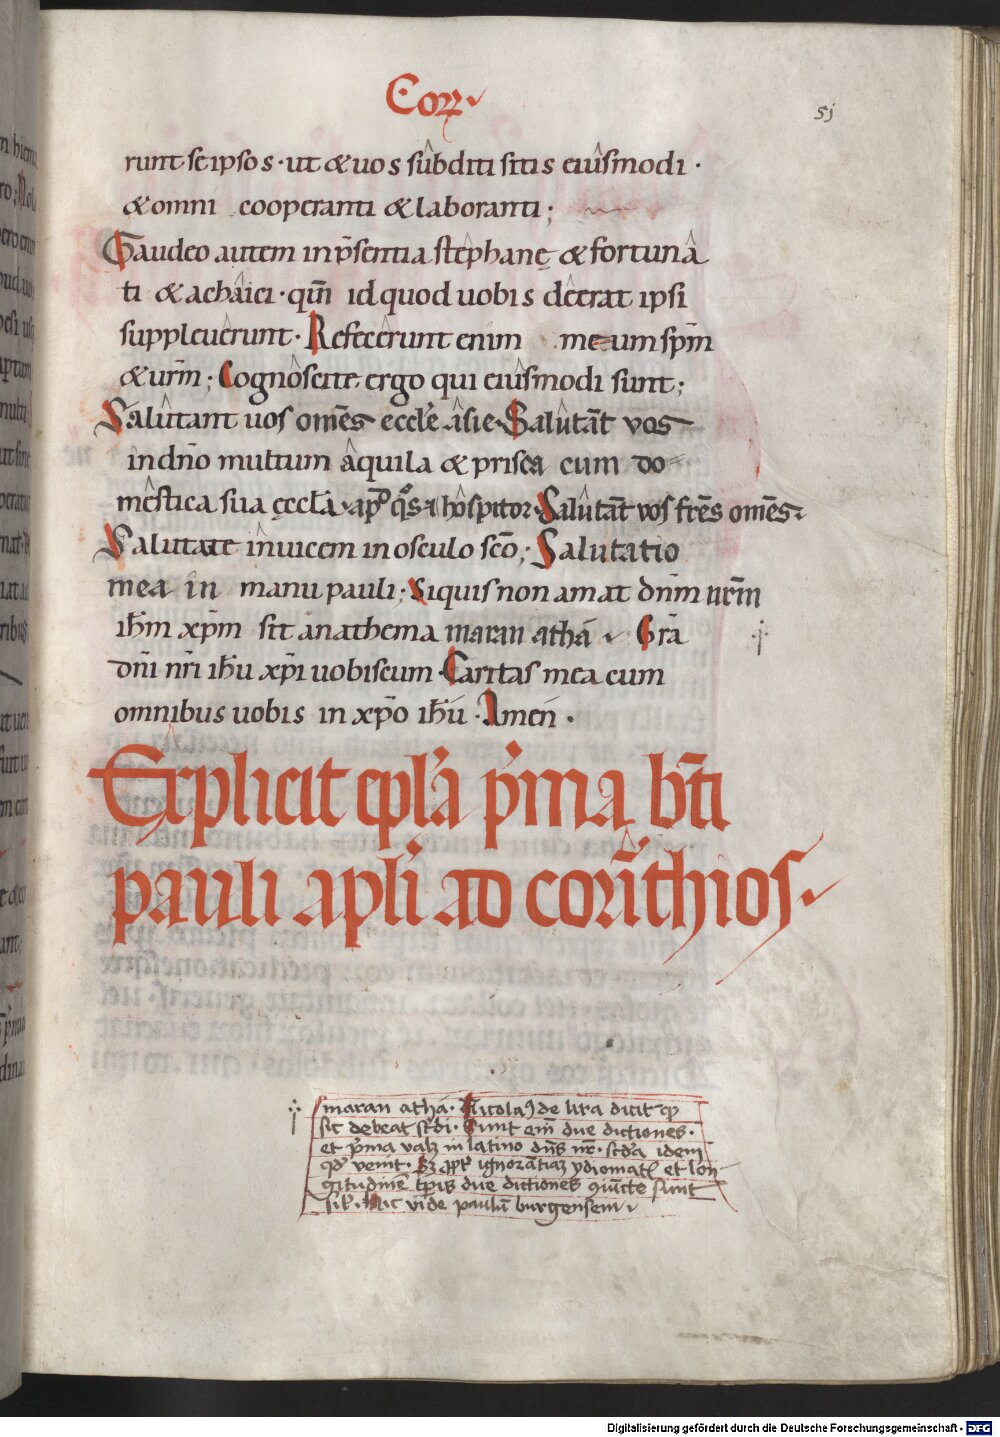 Corꝝ
51
runt se ipsos · ut & uos sûbditi sitis eiûsmodi ·
& omni cooperanti & laboranti ;
Gaudeo autem in p̄sentia stêphanę & fortunâ
ti & achâici · qm̄ id quod uobis dêerat ipsi
suppleuêrunt · Refecêrunt enim meum spm̄
& urm̄ ; Cognôscite ergo qui eiûsmodi sunt ;
Salûtant uos om̄es eccl̄e âsie · Salûtāt vos
in dn̄o multum âquila & prisca cum do
mêstica sua ęccl̄a · ap̄ q̊s & hôspitor · Salûtāt vos fr̄es om̄es
Salutate inuicem in osculo scō ; Salutatio
mea in manu pauli ; Siquis non amat dnm̄ nrm̄
ih̄m xp̄m sit anathema maran athá Gr̄a
dn̄i nr̄i ih̄u xp̄i uobiscum · Caritas mea cum
omnibus uobis in xp̄o ih̄u · Amen ·
Explicit ep̄la p̄ma b̄ti
pauli apl̄i ad corīthios
maran athá · Nicolaꝰ de lira dicit qꝫ
sic debeat scdi · Sunt em̄ due dictiones ·
et p̄ma valꝫ in latino dn̄s nr̄ · scd̄a idem
qd̄ venit · Sꝫ ꝓpt̄ ignorātiaꝫ ydiomatꝭ et lon
gitudinē tp̄is due dictiones ꝯiūcte sunt
sil̄ · Hic vide paulū burgensem
Digitalisierung gefördert durch die Deutsche Forschungsgemeinschaft - DFG